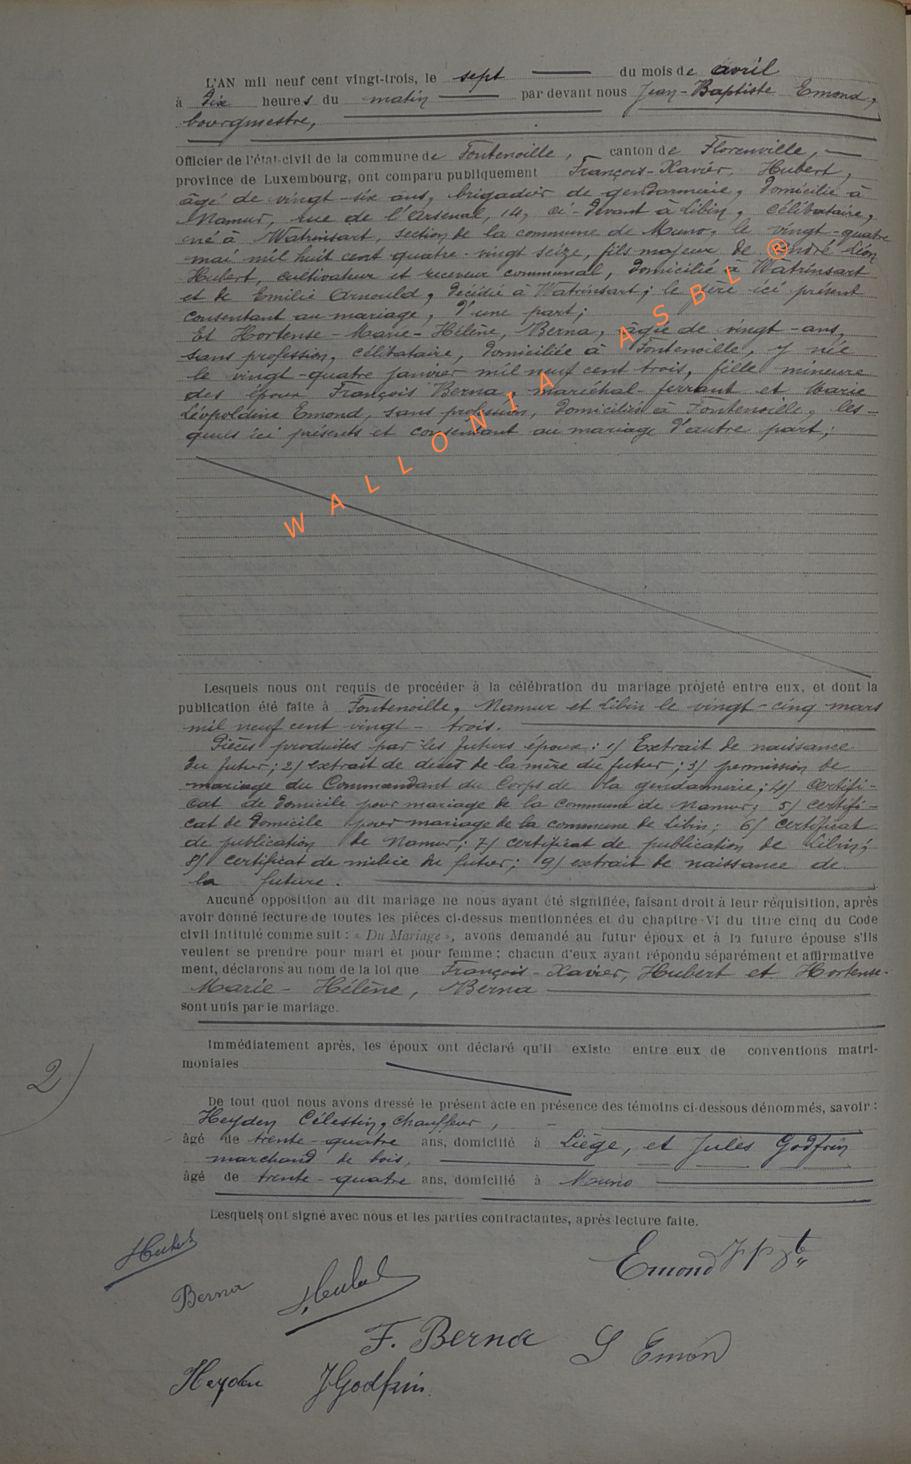 L'AN mil neuf cent vingt-trois, le sept du mois de avril
à dix heures du matin par devant nous Jean-Baptiste Emond,
bourgmestre,
Officier de l'état-civil de la commune de Fontenoille, canton de Florenville,
province de Luxembourg, ont comparu publiquement François-Xavier, Hubert,
âgé de vingt-six ans, brigadier de gendarmerie, domicilié à
Namur, rue de l'Arsenal, 14, ci-devant à Libin, célibataire,
né à Watrinsart, section de la commune de Muno, le vingt-quatre
mai mil huit cent quatre-vingt seize, fils majeur de André Léon
Hubert, cultivateur et receveur communal, domicilié à Watrinsart
et de Emilie Arnould, décédée à Watrinsart; le père ici présent
consentant au mariage, d'une part;
Et Hortense-Marie-Hélène, Berna, âgée de vingt-ans,
sans profession, célibataire, domiciliée à Fontenoille, y née
le vingt-quatre janvier mil neuf cent trois, fille mineure
des époux François Berna, maréchal-ferrant et Marie
Léopoldine Emond, sans profession, domiciliés à Fontenoille, les-
quels ici présents et consentant au mariage d'autre part;
WALLONIA ASBL ®
Lesquels nous ont requis de procéder à la célébration du mariage projeté entre eux, et dont la
publication été faite à Fontenoille, Namur et Libin le vingt-cinq mars
mil neuf cent vingt-trois.
Pièces produites par les futurs époux: 1/ Extrait de naissance
du futur; 2/ extrait de décès de la mère du futur; 3/ permission de
mariage du Commandant du Corps de la gendarmerie; 4/ certifi-
cat de domicile pour mariage de la commune de Namur; 5/ certifi-
cat de domicile pour mariage de la commune de Libin; 6/ certificat
de publication de Namur; 7/ certificat de publication de Libin;
8/ certificat de milice du futur; 9/ extrait de naissance de
la future.
Aucune opposition au dit mariage ne nous ayant été signifiée, faisant droit à leur réquisition, après
avoir donné lecture de toutes les pièces ci-dessus mentionnées et du chapitre VI du titre cinq du Code
civil intitulé comme suit: « Du Mariage », avons demandé au futur époux et à la future épouse s'ils
veulent se prendre pour mari et pour femme: chacun d'eux ayant répondu séparément et affirmative
ment, déclarons au nom de la loi que François-Xavier, Hubert et Hortense-
Marie-Hélène, Berna
sont unis par le mariage.
Immédiatement après, les époux ont déclaré qu'il existe entre eux de conventions matri-
moniales
2)
De tout quoi nous avons dressé le présent acte en présence des témoins ci-dessous dénommés, savoir:
Heyden Célestin, chauffeur,
âgé de trente-quatre ans, domicilié à Liège, et Jules Godfrin
marchand de bois,
âgé de trente-quatre ans, domicilié à Muno
Lesquels ont signé avec nous et les parties contractantes, après lecture faite.
Hubert
Emond
Berna Hubert
F. Berna L Emond
Heyden JGodfrin